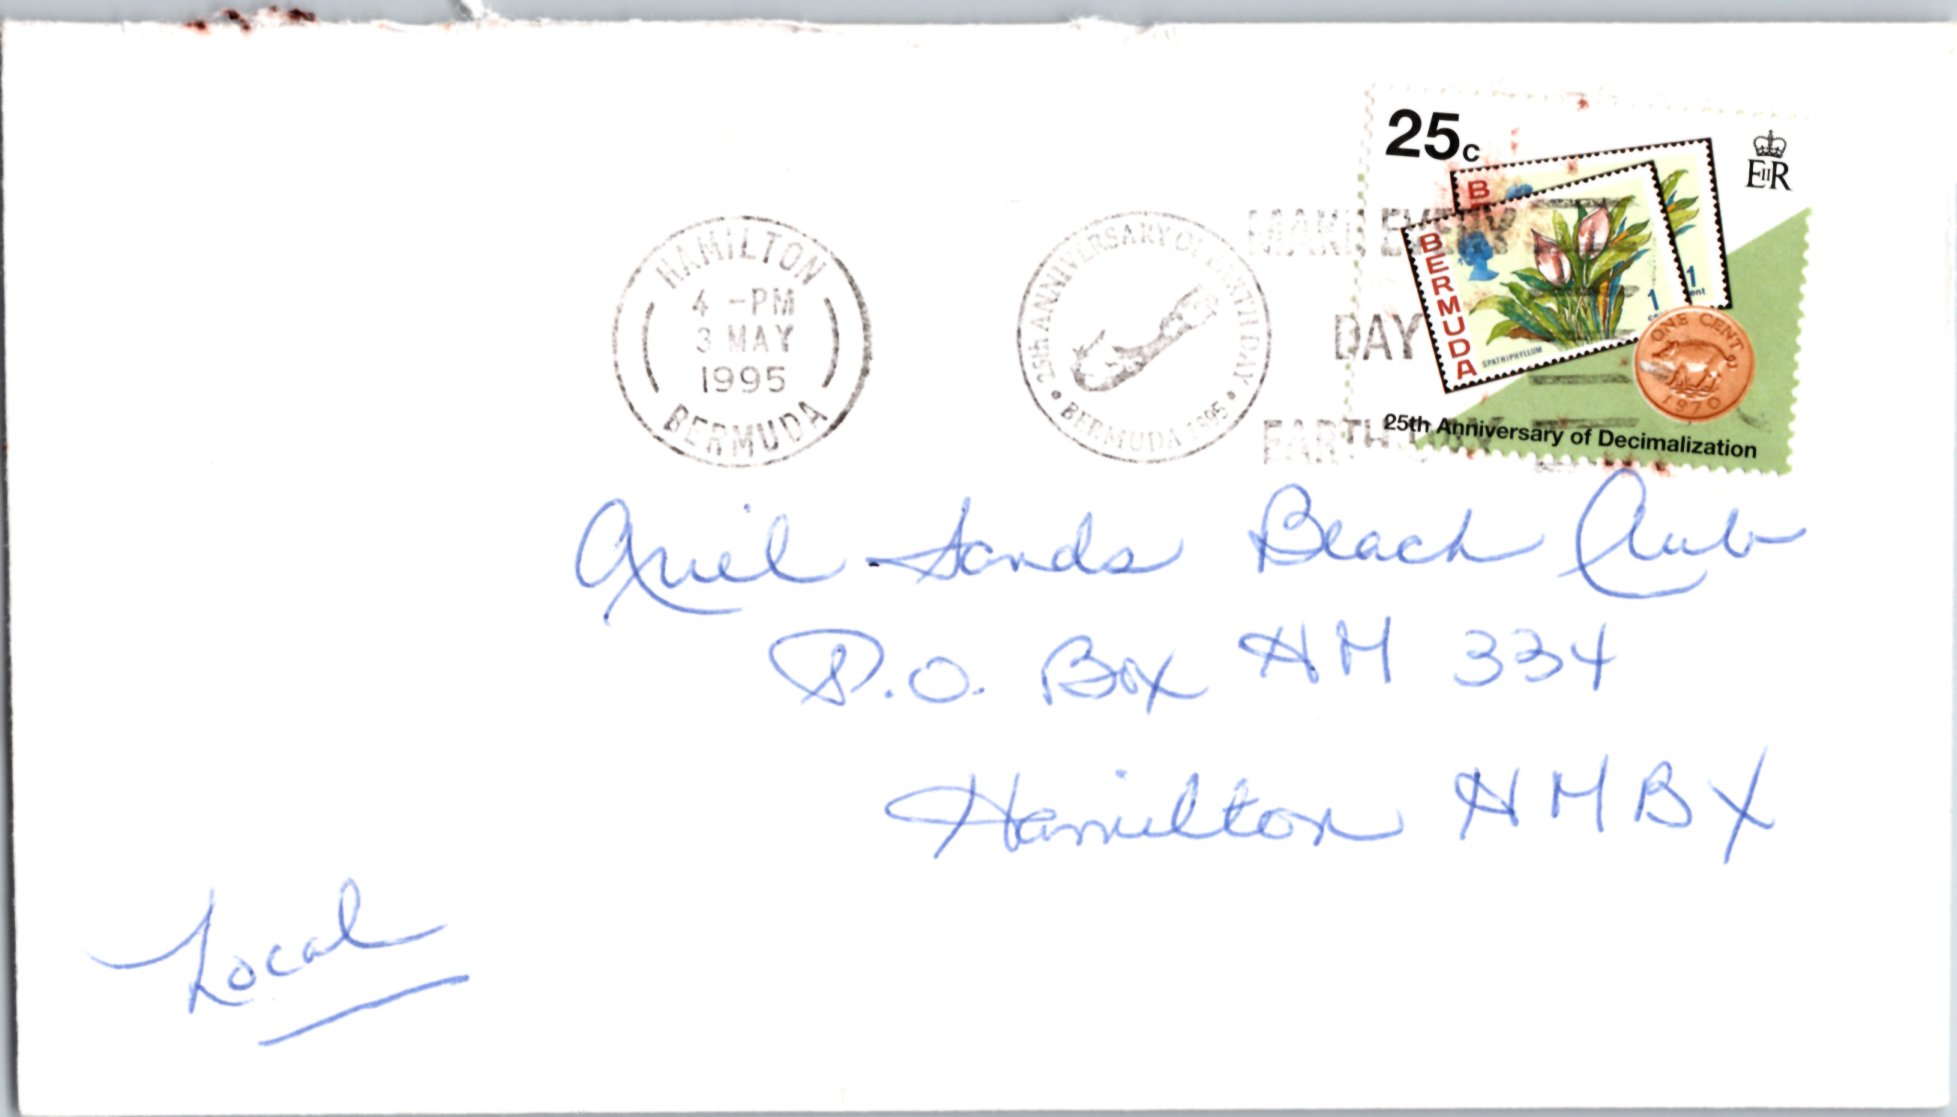 25c
EIIR
B
BERMUDA
1
cent
1
SPATHIPHYLLUM
ONE CENT
1970
25th Anniversary of Decimalization
HAMILTON
4 -PM
3 MAY
1995
BERMUDA
25th ANNIVERSARY OF EARTH DAY
• BERMUDA 1995 •
MAKE EVERY
DAY
EARTH DAY
Ariel Sands Beach Club
P.O. Box HM 334
Hamilton HMBX
Local